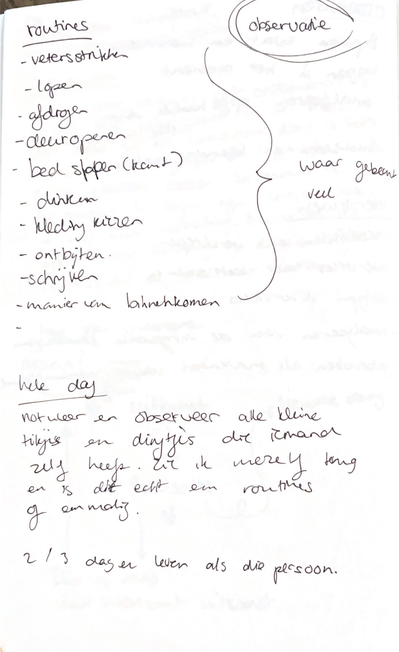 routines
observatie
- veterstrikken
- lopen
- afdrogen
- deur openen
- bed slapen (kant)
- drinken
- kleding kiezen
- ontbijten.
- schrijven
- manier van binnenkomen
-
waar gebeurt
veel
hele dag
notuleer en observeer alle kleine
tikjes en dingtjes die iemand
zelf heeft. Zie ik mezelf terug
en is dit echt een routines
of eenmalig.
2 / 3 dagen leven als die persoon.